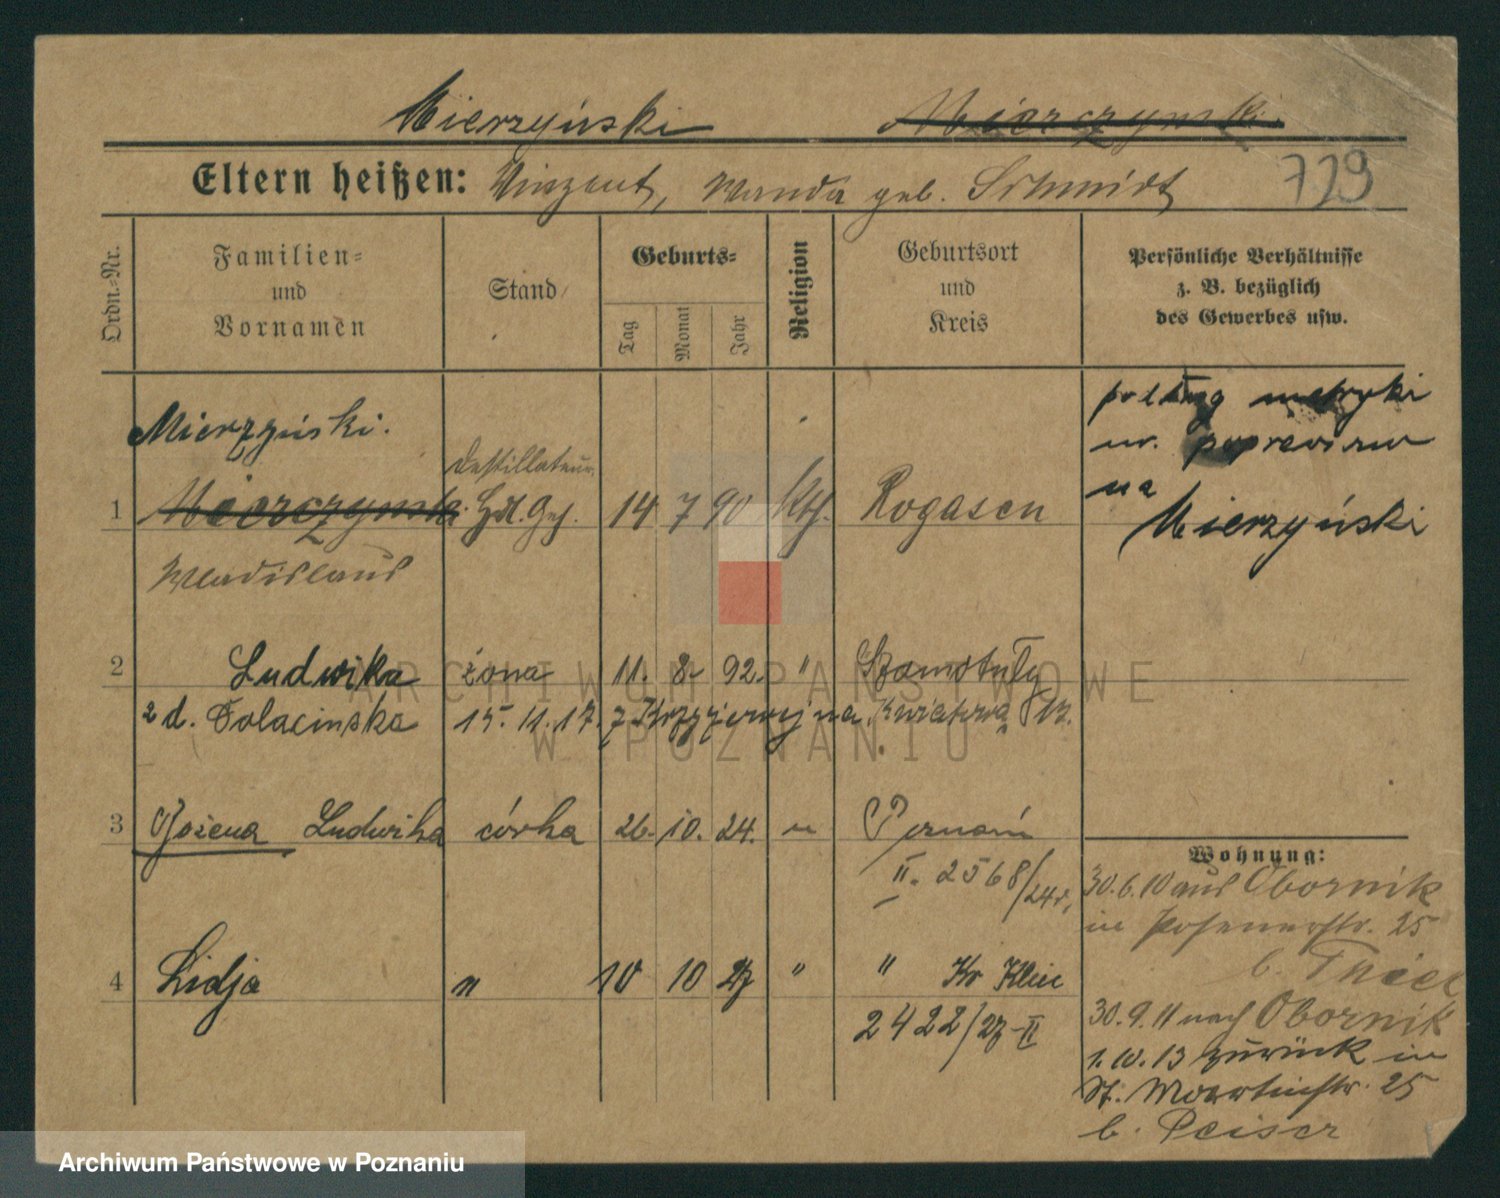 Mierzyński Mierczynski.
Eltern heißen: Vinzent, Wanda geb. Schmidt 729
Ordn.-Nr.
Familien- und Vornamen
Stand
Geburts-
Tag Monat Jahr
Religion
Geburtsort und Kreis
Persönliche Verhältnisse z. B. bezüglich des Gewerbes usw.
Mierzyński.
Destillateur
1 Mierczynski Hdl. Geh. 14 7 90 Kth. Rogasen
Wladislaus
metryki
ur. poprawiono
na
Mierzyński
2 Ludwika żona 11. 8. 92. " Szamotuły
2 d. Tolacińska 15. 11. 17. z Krzyżowej na Kwiatową
3 Bożena Ludwika córka 26. 10. 24. " Poznań
II. 2568/24r.
4 Lidja " 10 10 27 " "
2422/27-II
Wohnung:
30.6.10 aus Obornik
in Posenerstr. 25
b. Thiel
30.9.11 nach Obornik
1.10.13 zurück in
St. Martinstr. 25
b. Peiser
ARCHIWUM PAŃSTWOWE
W POZNANIU
Archiwum Państwowe w Poznaniu